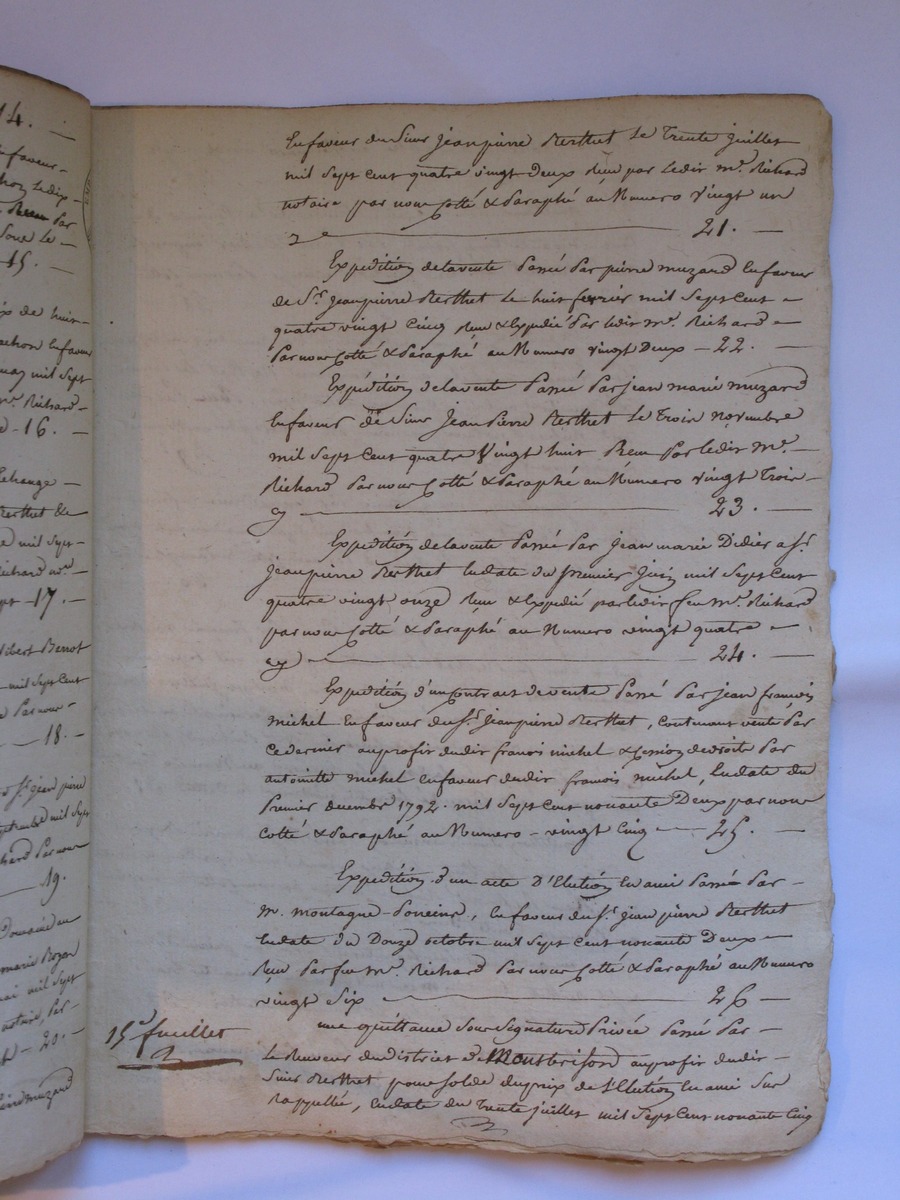 14. —
en faveur
15. —
mil sept
Richard
16. —
Echange —
Berthet de
mil sept
Richard
17. —
mil sept cent
par nous
18. —
Sr jean pierre
mil sept
par nous
19.
marie
mai mil sept
notaire, par
20. —
muzard
En faveur du Sieur jean pierre Berthet le Trente juillet
mil sept cent quatre vingt Deux Reçu par ledit Me. Richard
notaire par nous Cotté & Paraphé au Numero vingt un
21. —
Expedition de la vente Passé Par pierre muzard En faveur
de Sr. Jean pierre Berthet le huit fevrier mil sept cent
quatre vingt Cinq Reçu & Expedié Par ledit Me. Richard
Par nous Cotté & Paraphé au Numero vingt Deux — 22. —
Expédition de la vente Passé Par jean marie muzard
En faveur de Sieur Jean Pierre Berthet le Trois novembre
mil sept cent quatre Vingt huit Reçu Par ledit Me.
Richard Par nous Cotté & Paraphé au Numero vingt Trois
23. —
Expedition de la vente Passé Par jean marie Didier a Sr.
Jean pierre Berthet En date du premier juin mil sept cent
quatre vingt onze Reçu & Expedié par ledit feu Me. Richard
par nous Cotté & Paraphé au Numero vingt quatre
24. —
Expedition d'un Contrat de vente Passé Par jean francois
michel En faveur du Sr. jean pierre Berthet, Contenant vente Par
ce dernier au profit dudit francois michel & Cession de droits Par
antoinette michel en faveur dudit francois michel, En date du
Premier decembre 1792. mil sept cent nonante Deux par nous
Cotté & Paraphé au Numero — vingt Cinq — 25. —
Expedition d'un acte D'Election En ami Passé Par
M. montagne Ponsins, En faveur du Sr. jean pierre Berthet
En date Du Douze octobre mil sept cent nonante Deux
Reçu Par feu Me. Richard Par nous Cotté & Paraphé au Numero
vingt Six — 26 —
une quittance Sous Signature Privée Passé Par
15e. feuillet
le Receveur du district de Montbrison au profit dudit
Sieur Berthet pour solde du prix de l'Election En ami Sus
Rappellée, En date du Trente juillet mil sept cent nonante Cinq